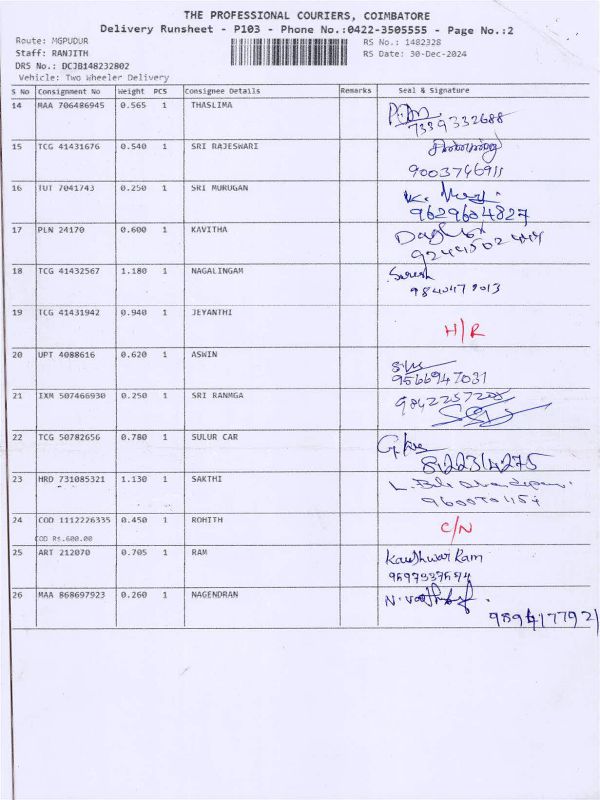 THE PROFESSIONAL COURIERS, COIMBATORE
Delivery Runsheet - P103 - Phone No.:0422-3505555 - Page No.:2
Route: MGPUDUR RS No.: 1482328
Staff: RANJITH RS Date: 30-Dec-2024
DRS No.: DCJB148232802
Vehicle: Two Wheeler Delivery
S No Consignment No Weight PCS Consignee Details Remarks Seal & Signature
14 MAA 706486945 0.565 1 THASLIMA
7339332688
15 TCG 41431676 0.540 1 SRI RAJESWARI
9003746911
16 TUT 7041743 0.250 1 SRI MURUGAN
9629604827
17 PLN 24170 0.600 1 KAVITHA
18 TCG 41432567 1.180 1 NAGALINGAM Suresh
19 TCG 41431942 0.940 1 JEYANTHI
H/R
20 UPT 4088616 0.620 1 ASWIN
9566947031
21 IXM 507466930 0.250 1 SRI RANMGA
22 TCG 50782656 0.780 1 SULUR CAR
8122314275
23 HRD 731085321 1.130 1 SAKTHI
24 COD 1112226335 0.450 1 ROHITH C/N
COD Rs.600.00
25 ART 212070 0.705 1 RAM Kaushwar Ram
26 MAA 868697923 0.260 1 NAGENDRAN
9894177921